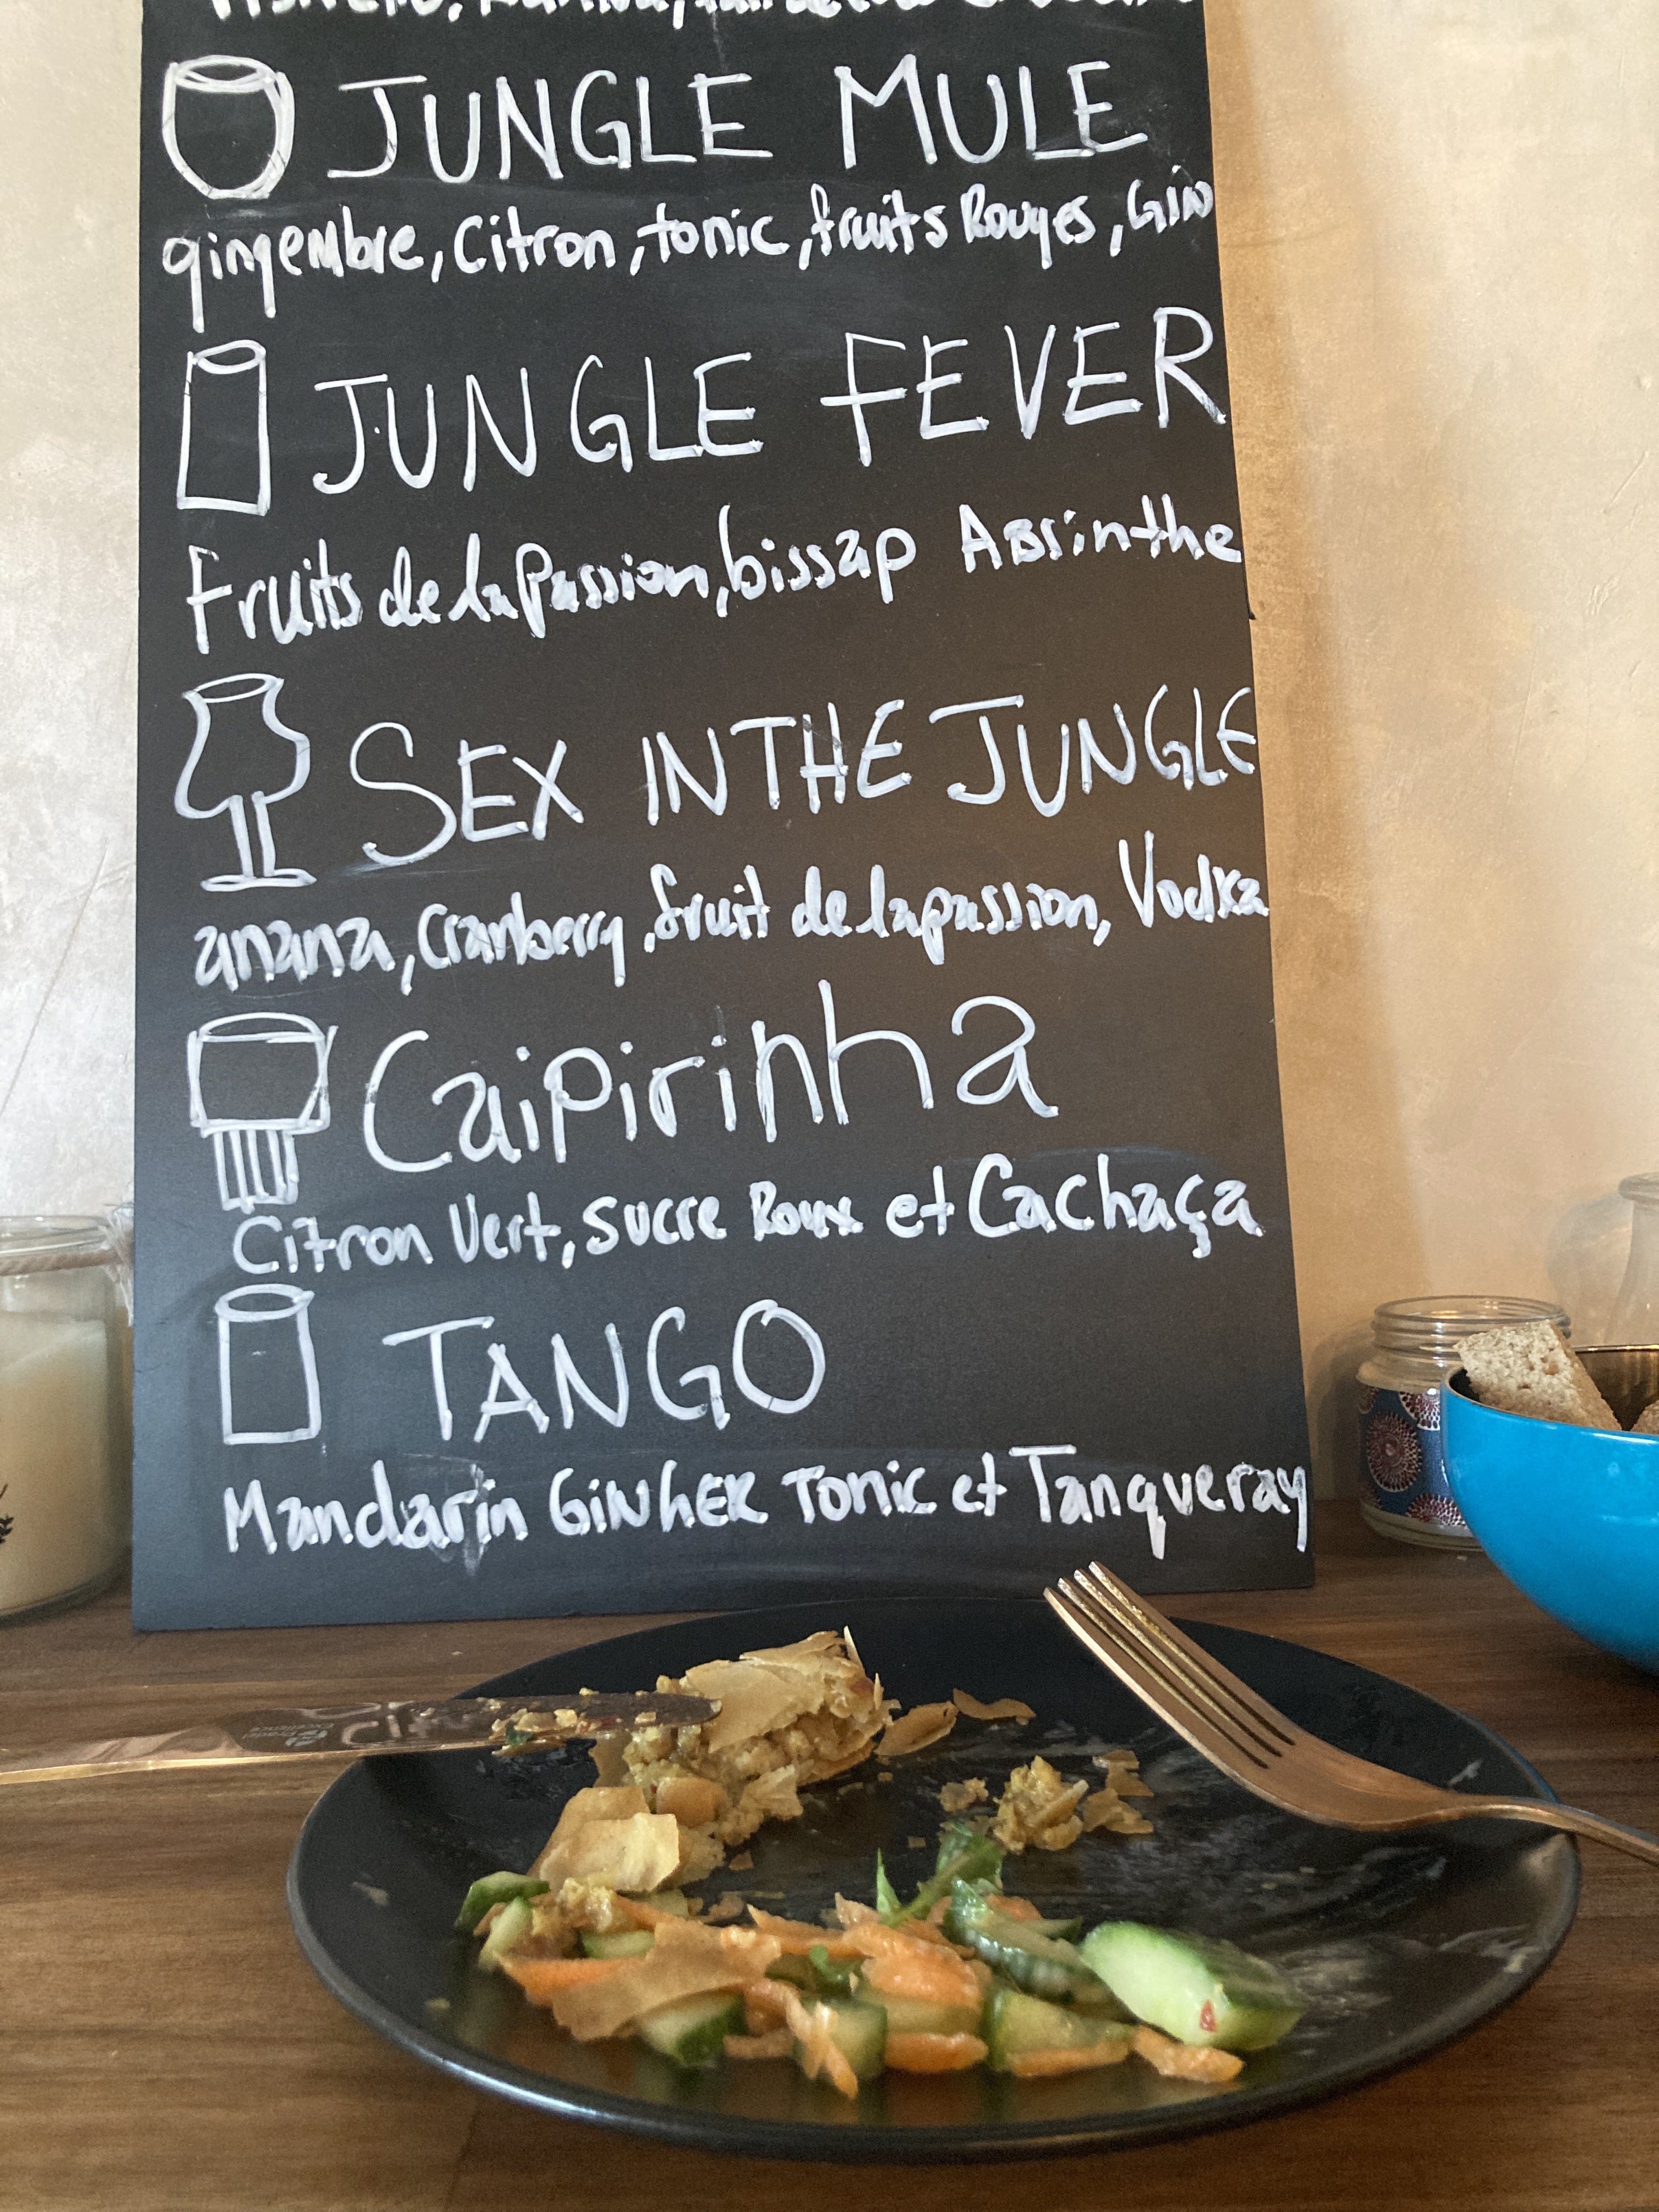 JUNGLE MULE
gingembre, Citron, tonic, fruits Rouges, Gin
JUNGLE FEVER
Fruits de la Passion, bissap Absinthe
SEX IN THE JUNGLE
anana, Cranberry, fruit de la passion, Vodka
Caipirinha
Citron Vert, Sucre Roux et Cachaça
TANGO
Mandarin GINhER Tonic et Tanqueray